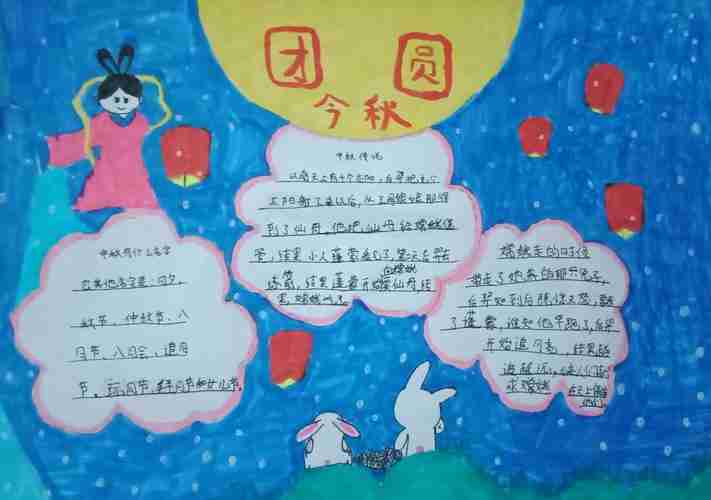 团圆
今秋
中秋传说
以前天上有十个太阳，后羿把九个
太阳射了下来以后，从王母娘娘那
到了仙丹，他把仙丹给嫦娥保
管，结果小人蓬蒙
练箭，结果蓬蒙开始 仙丹，结
果，嫦娥
中秋有什么名字
它其他名字是：月夕，
秋节、仲秋节、八
月节、八月会、追月
节、玩月节、拜月节和女儿节。
嫦娥走的时候
带走了她养的那只兔子，
后羿知到后
了蓬蒙，谁知他早跑了，后羿
开始追月亮，结果越
追越远，
求嫦娥